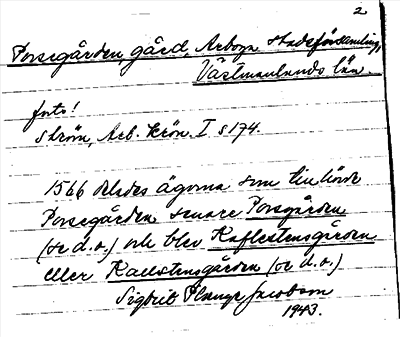 2
Porsegården, gård, Arboga stadsförsamling,
Västmanlands län.
forts!
Ström, Arb. Krön. I s 174.
1566 delades ägorna som tillhörde
Porsegården senare Porsgården
(se d.o.) och blev Kaflestensgården
eller Kallstensgården (se d.o.)
Sigbrit Plænge Jacobson
1943.